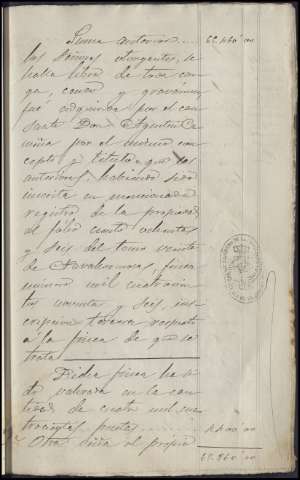 Suma anterior .... 65.460'00
los Señores otorgantes, se
halla libre de toda car
ga, censo y gravamen,
fué adquirida por el cau
sante Don Agustin
por el mismo con
cepto y titulo que las
anteriores, habiendo sido
inscrita en mencionado
registro de la propiedad
al folio ciento ochenta
y seis del tomo veinte
de Navalmoral, finca
numero mil cuatrocien
tos noventa y seis, ins
cripcion tercera respecto
á la finca de que se
trata
Dicha finca ha si
do valorada en la can
tidad de cuatro mil cua
trocientas pesetas ..... 4.400'00
Otra viña al propio
69.860'00